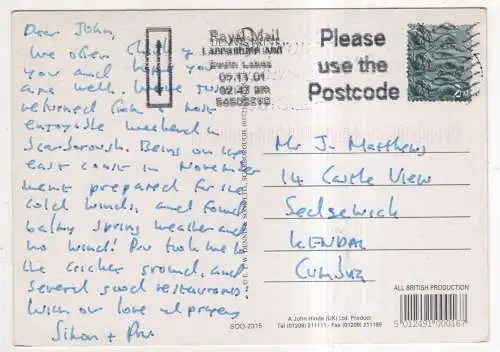 Dear John,
We often think of
you and hope you
are well. We've just
returned from a most
enjoyable weekend in
Scarborough. Being on the
east coast in November
went prepared for the
cold winds, and found
balmy spring weather and
no wind! Pru took me to
the cricket ground, and
several good restaurants!
With our love & prayers
Simon + Pru
Royal Mail
Lancashire and
South Lakes
09.11.01
02:43 am
Please
use the
Postcode
2nd
Mr J. Matthews
14 Castle View
Sedgewick
KENDAL
Cumbria
ALL BRITISH PRODUCTION
SOO - 2315
A John Hinde (UK) Ltd. Product
Tel (01209) 211111 - Fax (01209) 211189
5 012491 000167